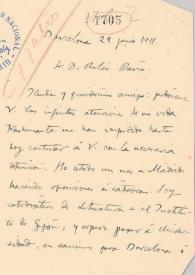 4705
Barcelona 29 junio 1911
Sr. D. Rubén Darío.
Ilustre y queridísimo amigo: perdóneme
V. Las infinitas atenciones de mi vida
trashumante me han impedido hasta
hoy contestar a V. con la necesaria
atención. He estado un mes en Madrid
haciendo oposiciones a cátedras. Soy
catedrático de Literatura en el Institu-
to de Gijón, y espero pasar a Univer-
sidad, en camino para Barcelona